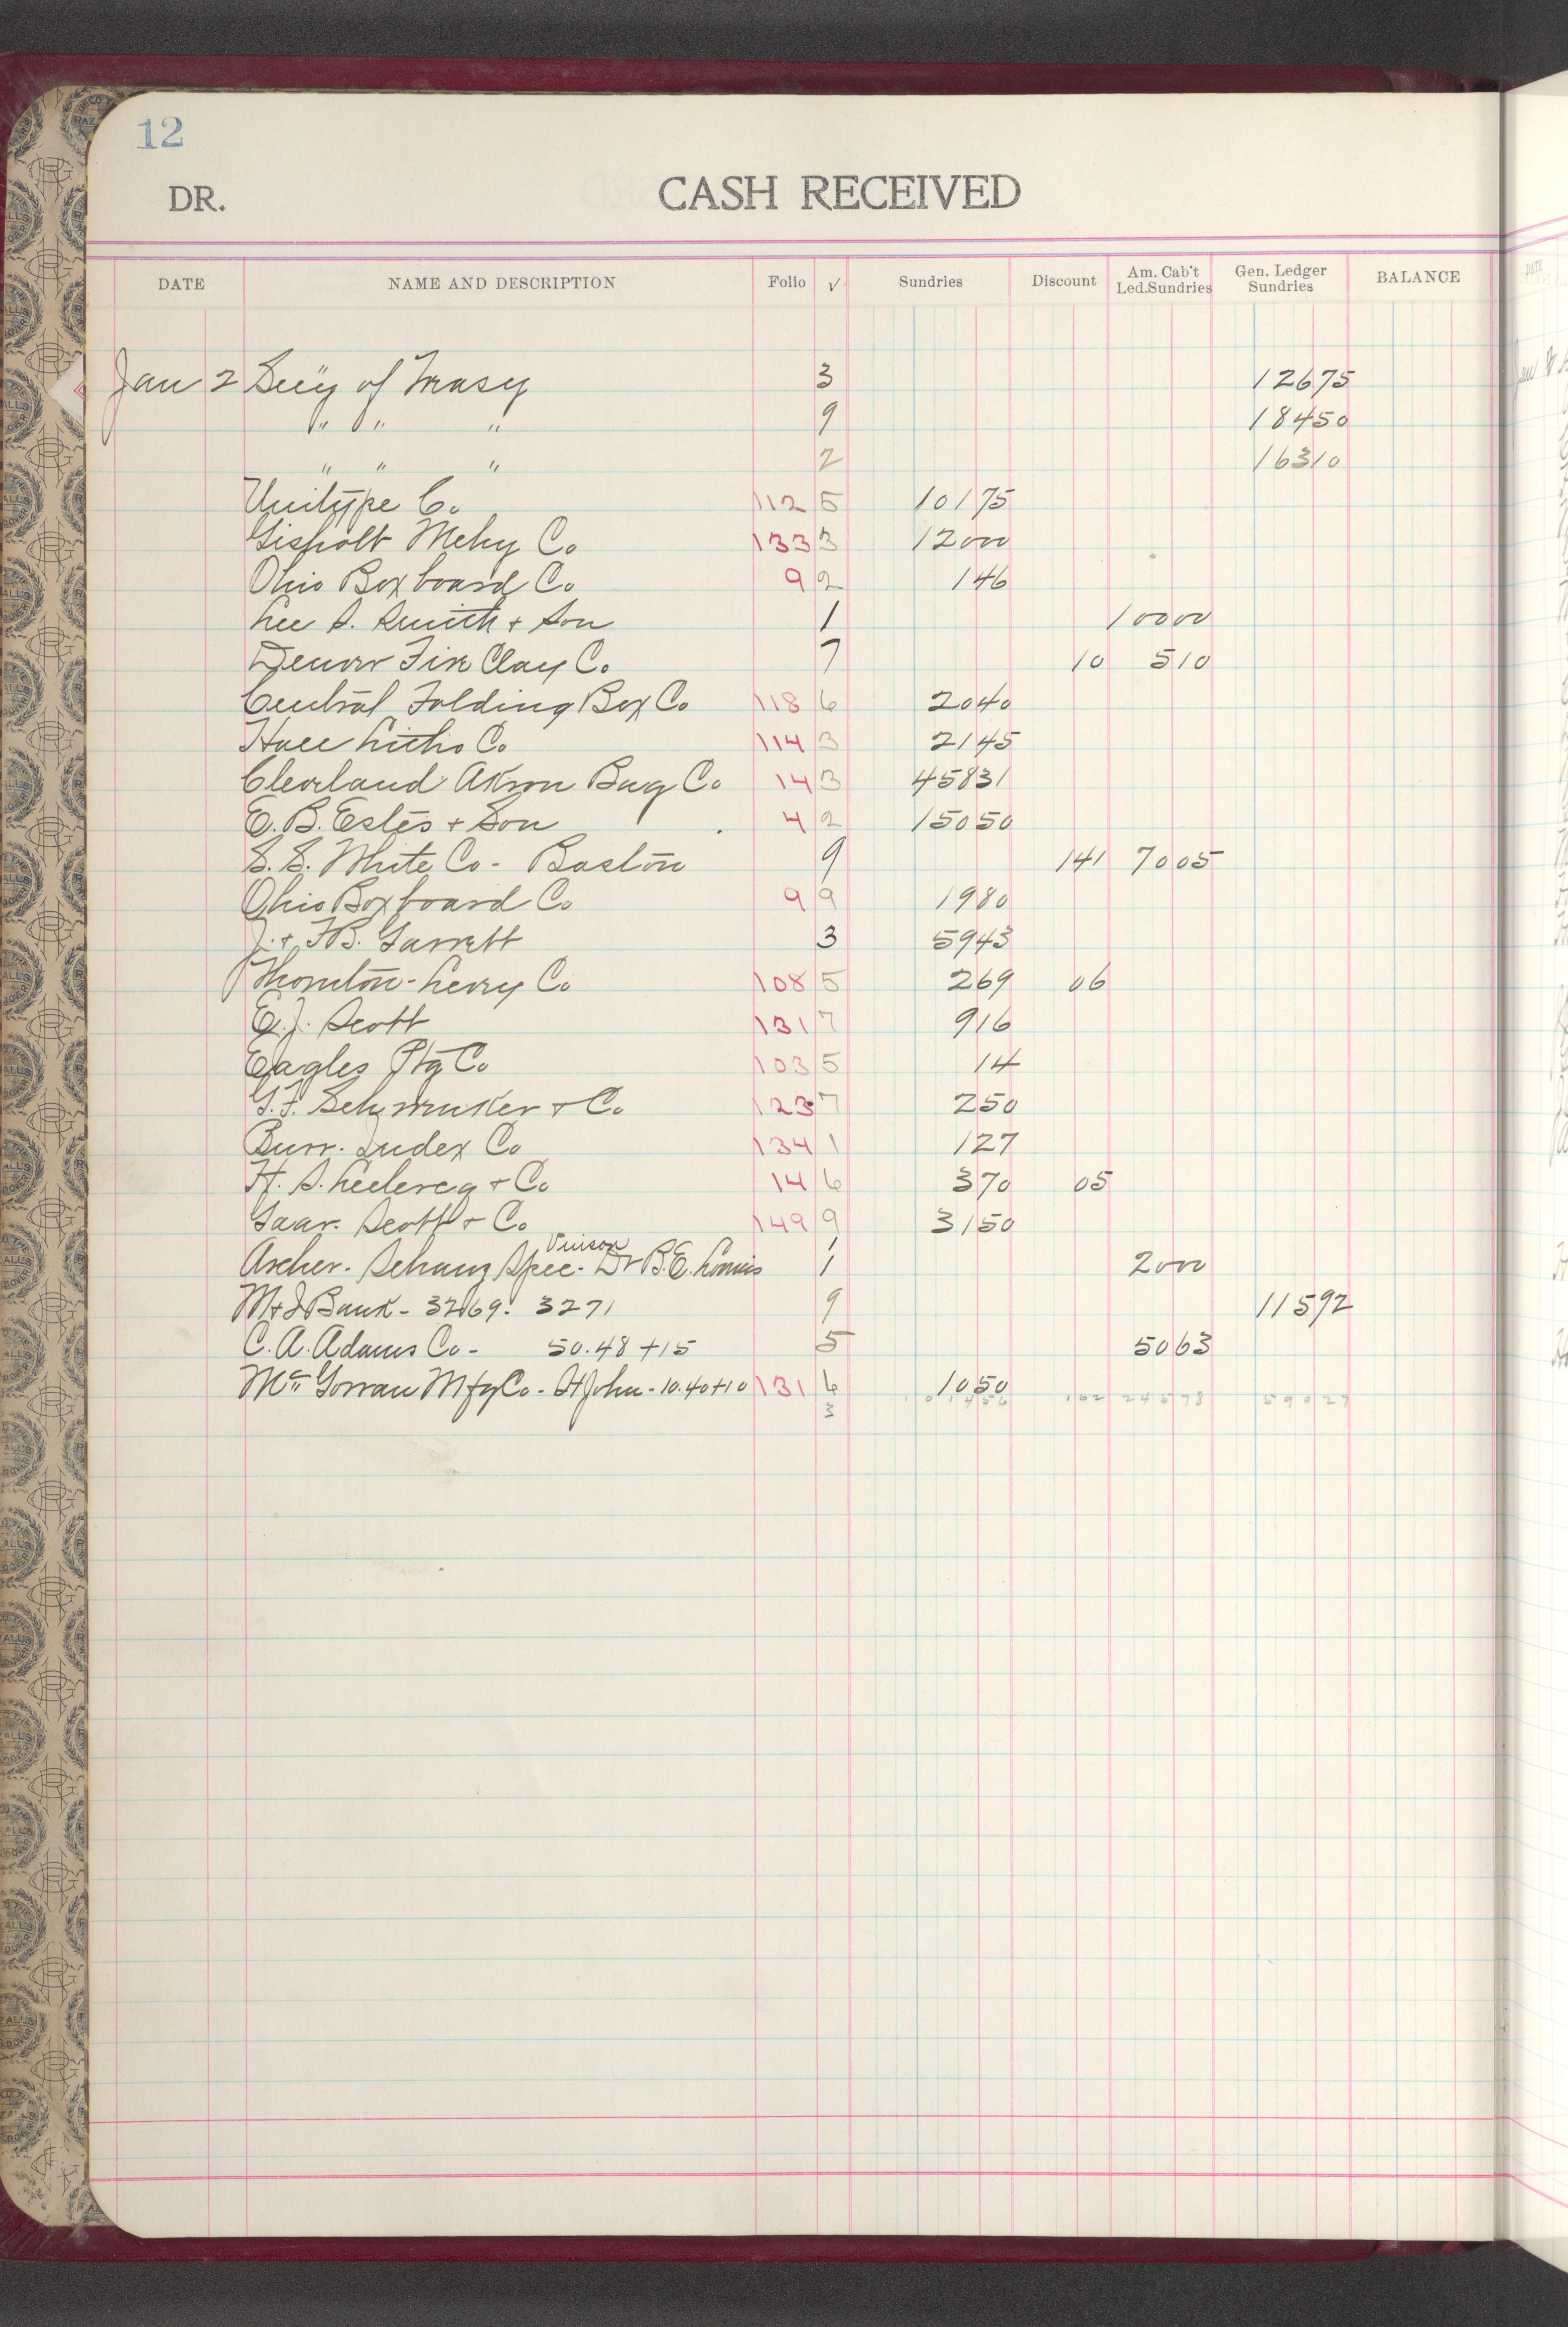 12
DR. CASH RECEIVED
DATE NAME AND DESCRIPTION Folio √ Sundries Discount Am. Cab't Led.Sundries Gen. Ledger Sundries BALANCE
Jan 2 of 3 12675
" " " 9 18450
" " " 2 16310
Unitype Co 112 5 10175
Gisholt Mchy Co 133 3 12000
Ohio Boxboard Co 9 2 146
Lee S. Smith + Son 1 10000
Denver Fire Clay Co 7 10 510
Central Folding Box Co 118 6 2040
Litho Co 114 3 2145
Cleveland Akron Bag Co 14 3 45831
E. B. Estes + Son 4 2 15050
S. S. White Co - Boston 9 141 7005
Ohio Boxboard Co 9 9 1980
J. + F.B. Garrett 3 5943
Thornton-Levey Co 108 5 269 06
E. J. Scott 131 7 916
Eagles Ptg Co 103 5 14
G. F. + Co 123 7 250
Burr. Index Co 134 1 127
H. S. Leclercq + Co 14 6 370 05
Gaar. Scott + Co 149 9 3150
Vinson
Archer. Schanz Spec. Dr B. E. 1 2000
Bank - 3269. 3271 9 11592
C. A. Adams Co - 50.48 + 15 5 5063
Mfg Co - St John - 10.40 + 10 131 6 1050
3 101456 162 24578 59027